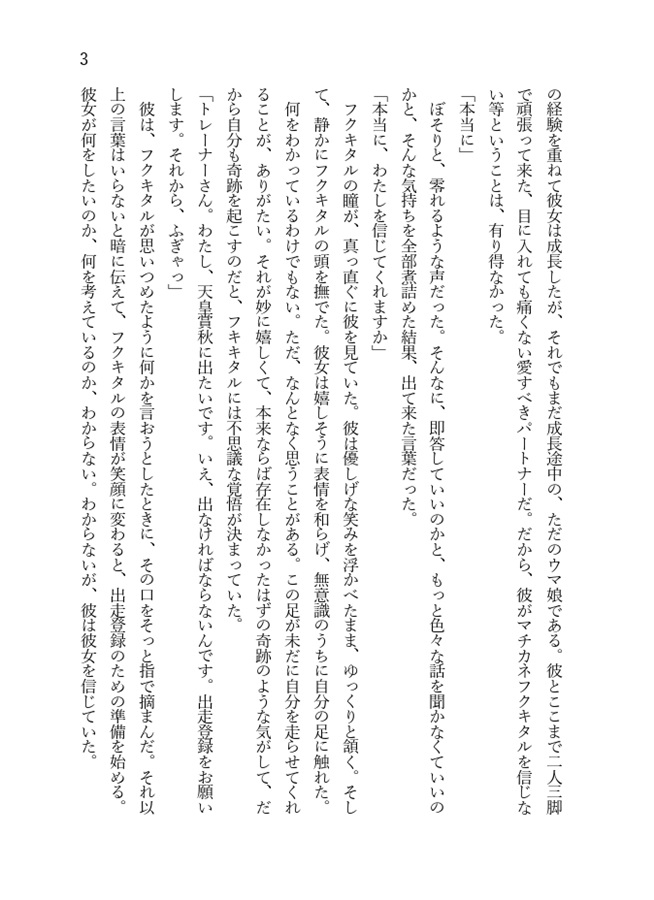 3
の経験を重ねて彼女は成長したが、それでもまだ成長途中の、ただのウマ娘である。彼とここまで二人三脚
で頑張って来た、目に入れても痛くない愛すべきパートナーだ。だから、彼がマチカネフクキタルを信じな
い等ということは、有り得なかった。
「本当に」
ぼそりと、零れるような声だった。そんなに、即答していいのかと、もっと色々な話を聞かなくていいの
かと、そんな気持ちを全部煮詰めた結果、出て来た言葉だった。
「本当に、わたしを信じてくれますか」
フクキタルの瞳が、真っ直ぐに彼を見ていた。彼は優しげな笑みを浮かべたまま、ゆっくりと頷く。そし
て、静かにフクキタルの頭を撫でた。彼女は嬉しそうに表情を和らげ、無意識のうちに自分の足に触れた。
何をわかっているわけでもない。ただ、なんとなく思うことがある。この足が未だに自分を走らせてくれ
ることが、ありがたい。それが妙に嬉しくて、本来ならば存在しなかったはずの奇跡のような気がして、だ
から自分も奇跡を起こすのだと、フキキタルには不思議な覚悟が決まっていた。
「トレーナーさん。わたし、天皇賞秋に出たいです。いえ、出なければならないんです。出走登録をお願い
します。それから、ふぎゃっ」
彼は、フクキタルが思いつめたように何かを言おうとしたときに、その口をそっと指で摘まんだ。それ以
上の言葉はいらないと暗に伝えて、フクキタルの表情が笑顔に変わると、出走登録のための準備を始める。
彼女が何をしたいのか、何を考えているのか、わからない。わからないが、彼は彼女を信じていた。